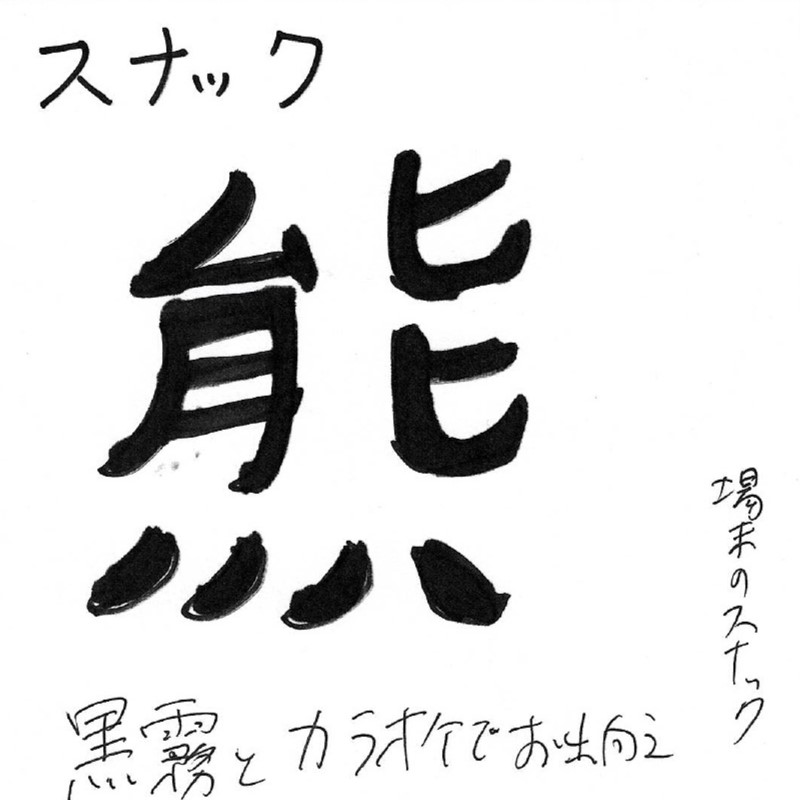 スナック
熊
場末のスナック
黒霧とカラオケでお出向え